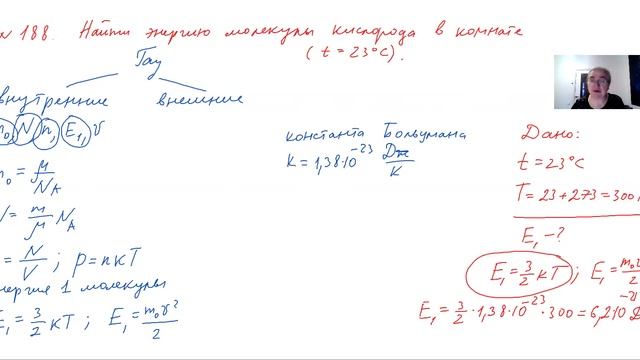 N 188. Найти энергию молекулы кислорода в комнате
(t = 23°C).
Газ
внутренние внешние
m₀, N, n, E₁, v
m₀ = μ/N_A
N = m/μ N_A
= N/V ; p = nкT
энергия 1 молекулы
E₁ = 3/2 кT ; E₁ = m₀v²/2
константа Больцмана
K = 1,38·10⁻²³ Дж/K
Дано:
t = 23°C
T = 23 + 273 = 300
E₁ - ?
E₁ = 3/2 кT ; E₁ = m₀v²/2
E₁ = 3/2 · 1,38·10⁻²³ · 300 = 6,210